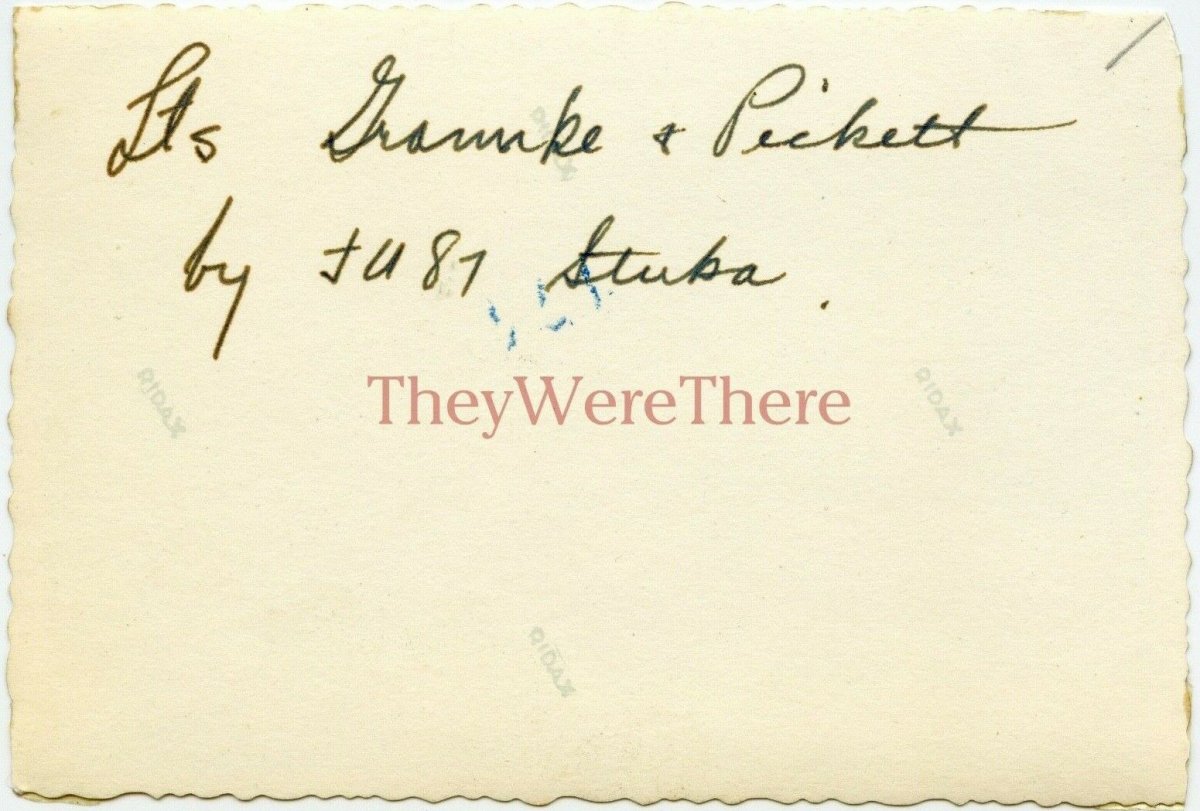 Lts Gramke & Pickett
by JU 87 Stuka.
TheyWereThere
RIDAX
RIDAX
RIDAX
RIDAX